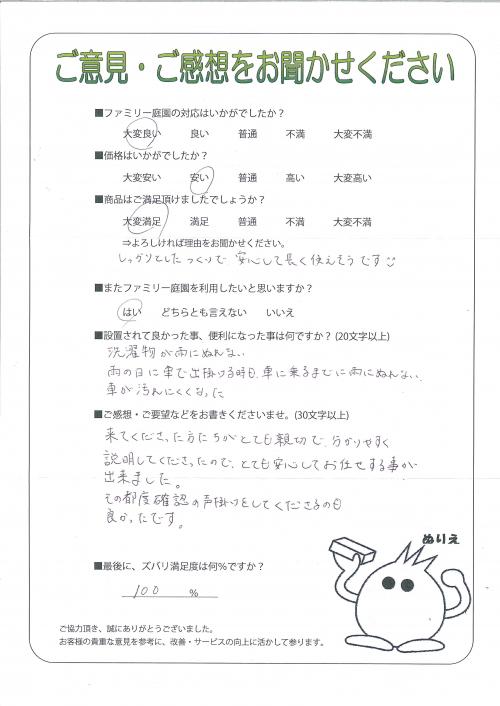 ご意見・ご感想をお聞かせください
■ファミリー庭園の対応はいかがでしたか？
大変良い　良い　普通　不満　大変不満
■価格はいかがでしたか？
大変安い　安い　普通　高い　大変高い
■商品はご満足頂けましたでしょうか？
大変満足　満足　普通　不満　大変不満
⇒よろしければ理由をお聞かせください。
しっかりとしたつくりで 安心して長く使えそうです
■またファミリー庭園を利用したいと思いますか？
はい　どちらとも言えない　いいえ
■設置されて良かった事、便利になった事は何ですか？(20文字以上)
洗濯物が雨にぬれない
雨の日に車で出掛ける時も、車に乗るまでに雨にぬれない
車が汚れにくくなった
■ご感想・ご要望などをお書きくださいませ。(30文字以上)
来てくださった方たちがとても親切で、分かりやすく
説明してくださったので、とても安心してお任せする事が
出来ました。
その都度確認の声掛けをしてくださるのも
良かったです。
ぬりえ
■最後に、ズバリ満足度は何％ですか？
100 %
ご協力頂き、誠にありがとうございました。
お客様の貴重な意見を参考に、改善・サービスの向上に活かして参ります。